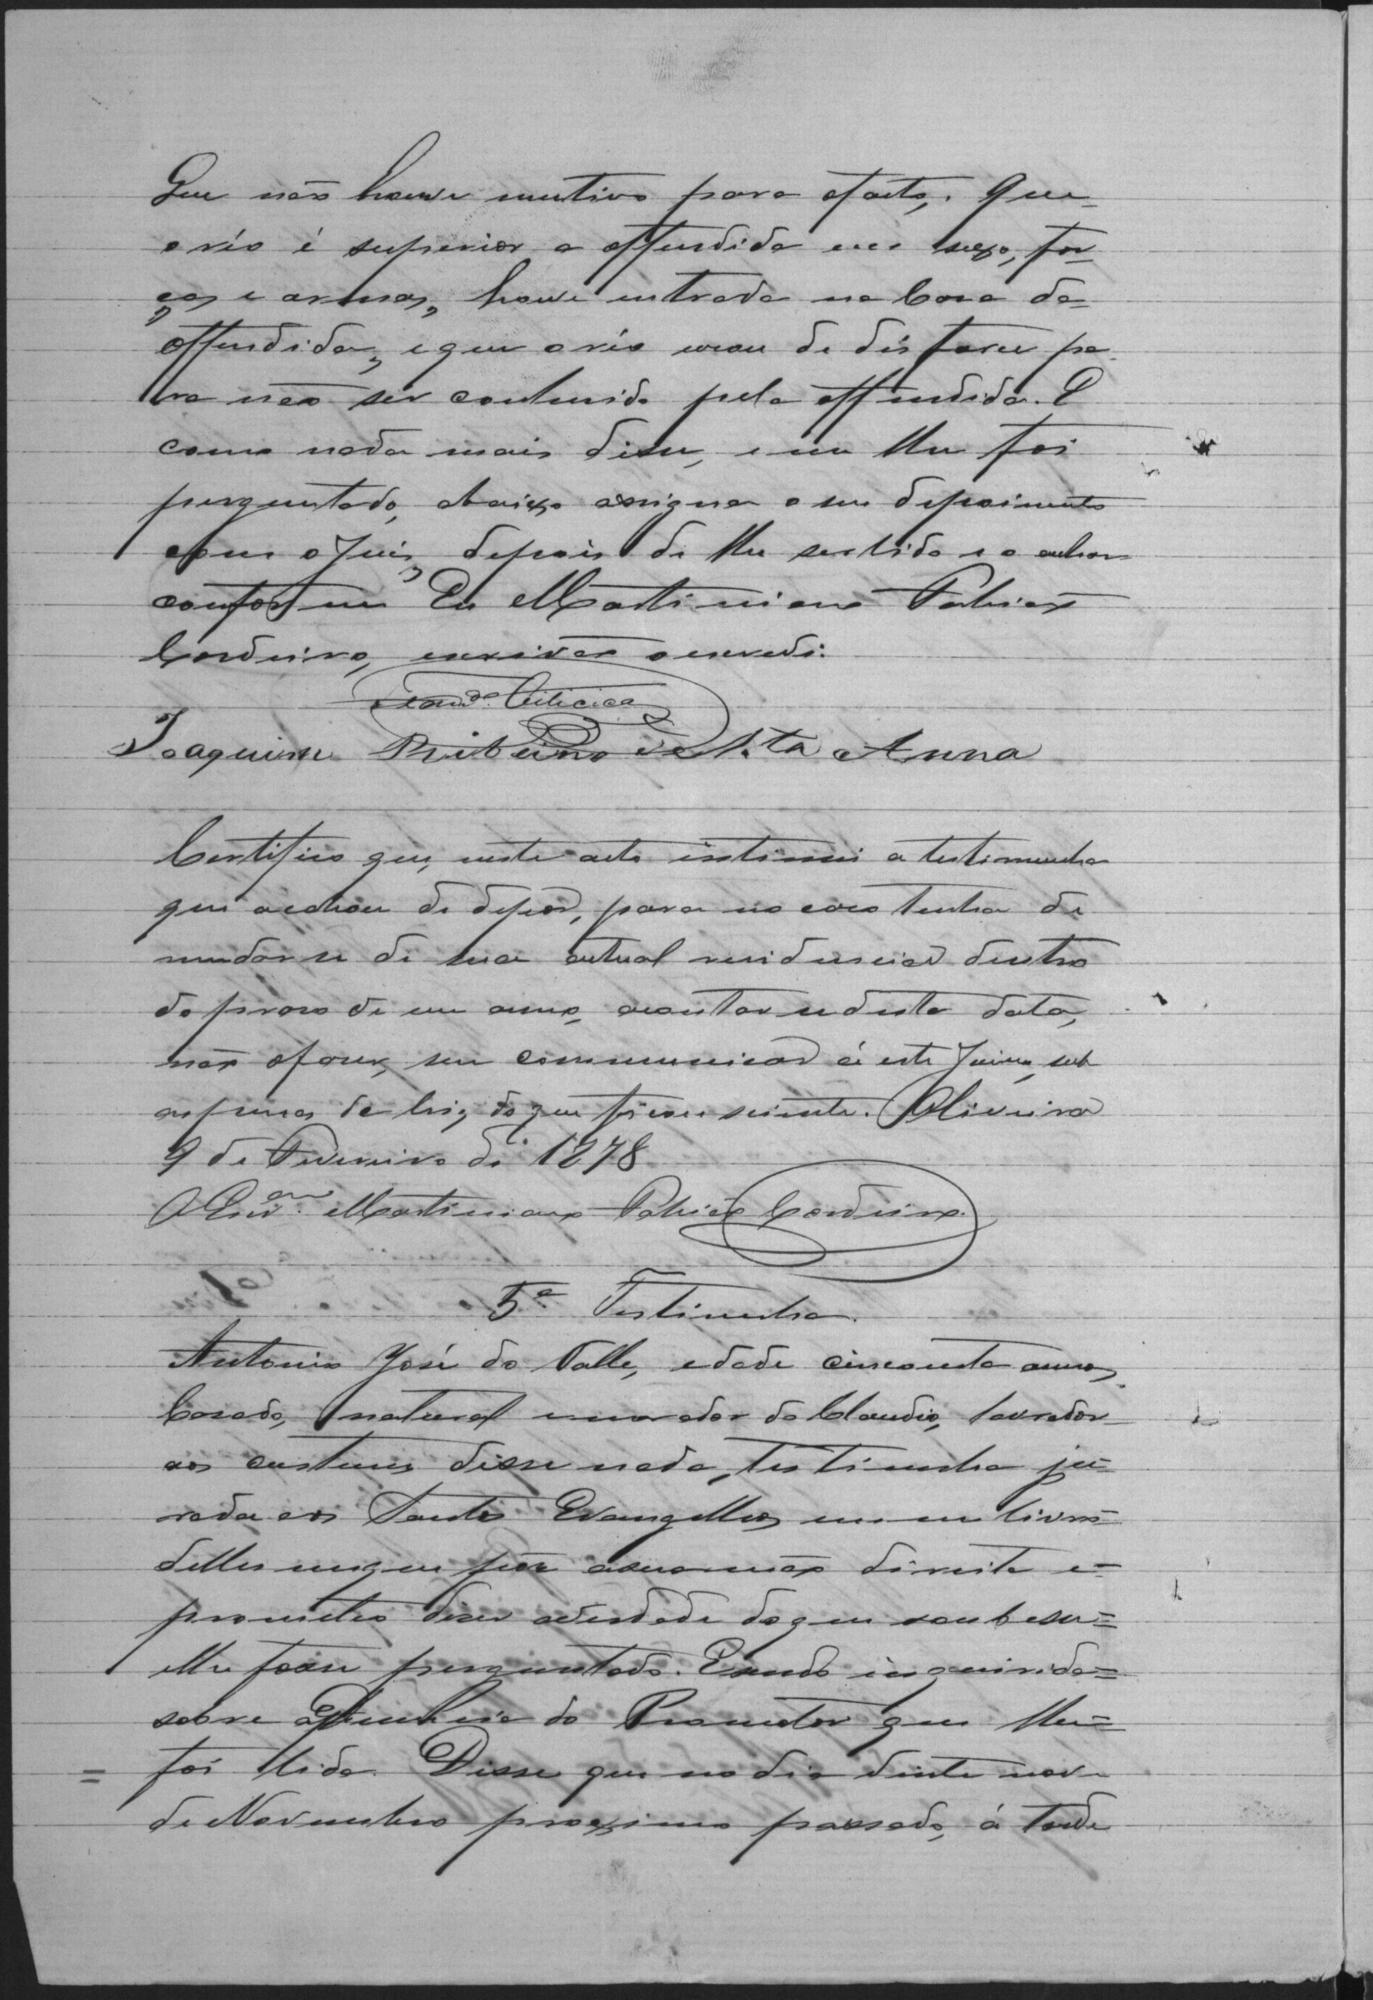 Que não houve mutivo para ofacto,. Que
o réo é superior a offendida em sexo, for-
ças e armas, houve entrada na Casa da
offendida, e que o réo usou de disfarce pa-
ra não ser conhecido pela offendida. E
como nada mais disse, e nem lhe foi
perguntado, abaixo assigna o seu depoimento
com o Juis, depois de lhe ser lido e o achar
conforme Eu Martiniano Patricio
Cordeiro, escrivão o escrevi.
Joaquim Ribeiro de S.ta Anna
Certifico que, neste acto intimei a testimunha
que acabou de depôr, para no caso tenha de
mudar-se de sua actual residencia dentro
do praso de um anno, acontar-se desta data,
não ofaser, sem communicar á este Juiso, sob
as penas da lei, do que ficou sciente. Oliveira
9 de Fevereiro de 1878
O Escr.am Martiniano Patricio Cordeiro
5.a Testimunha.
Antonio José do Valle, edade cincoenta annos,
Casado, natural e morador do Claudio, lavrador
aos custumes disse nada, testimunha ju-
rada aos Santos Evangelhos em um livro
delles em que pôs a sua mão direita e
prometeo diser averdade do que soubesse e
lhe fosse perguntado. E sendo inquirida
sobre a denuncia do Promotor que lhe
foi lida. Disse que no dia vinte nove
de Novembro proximo passado, á tarde